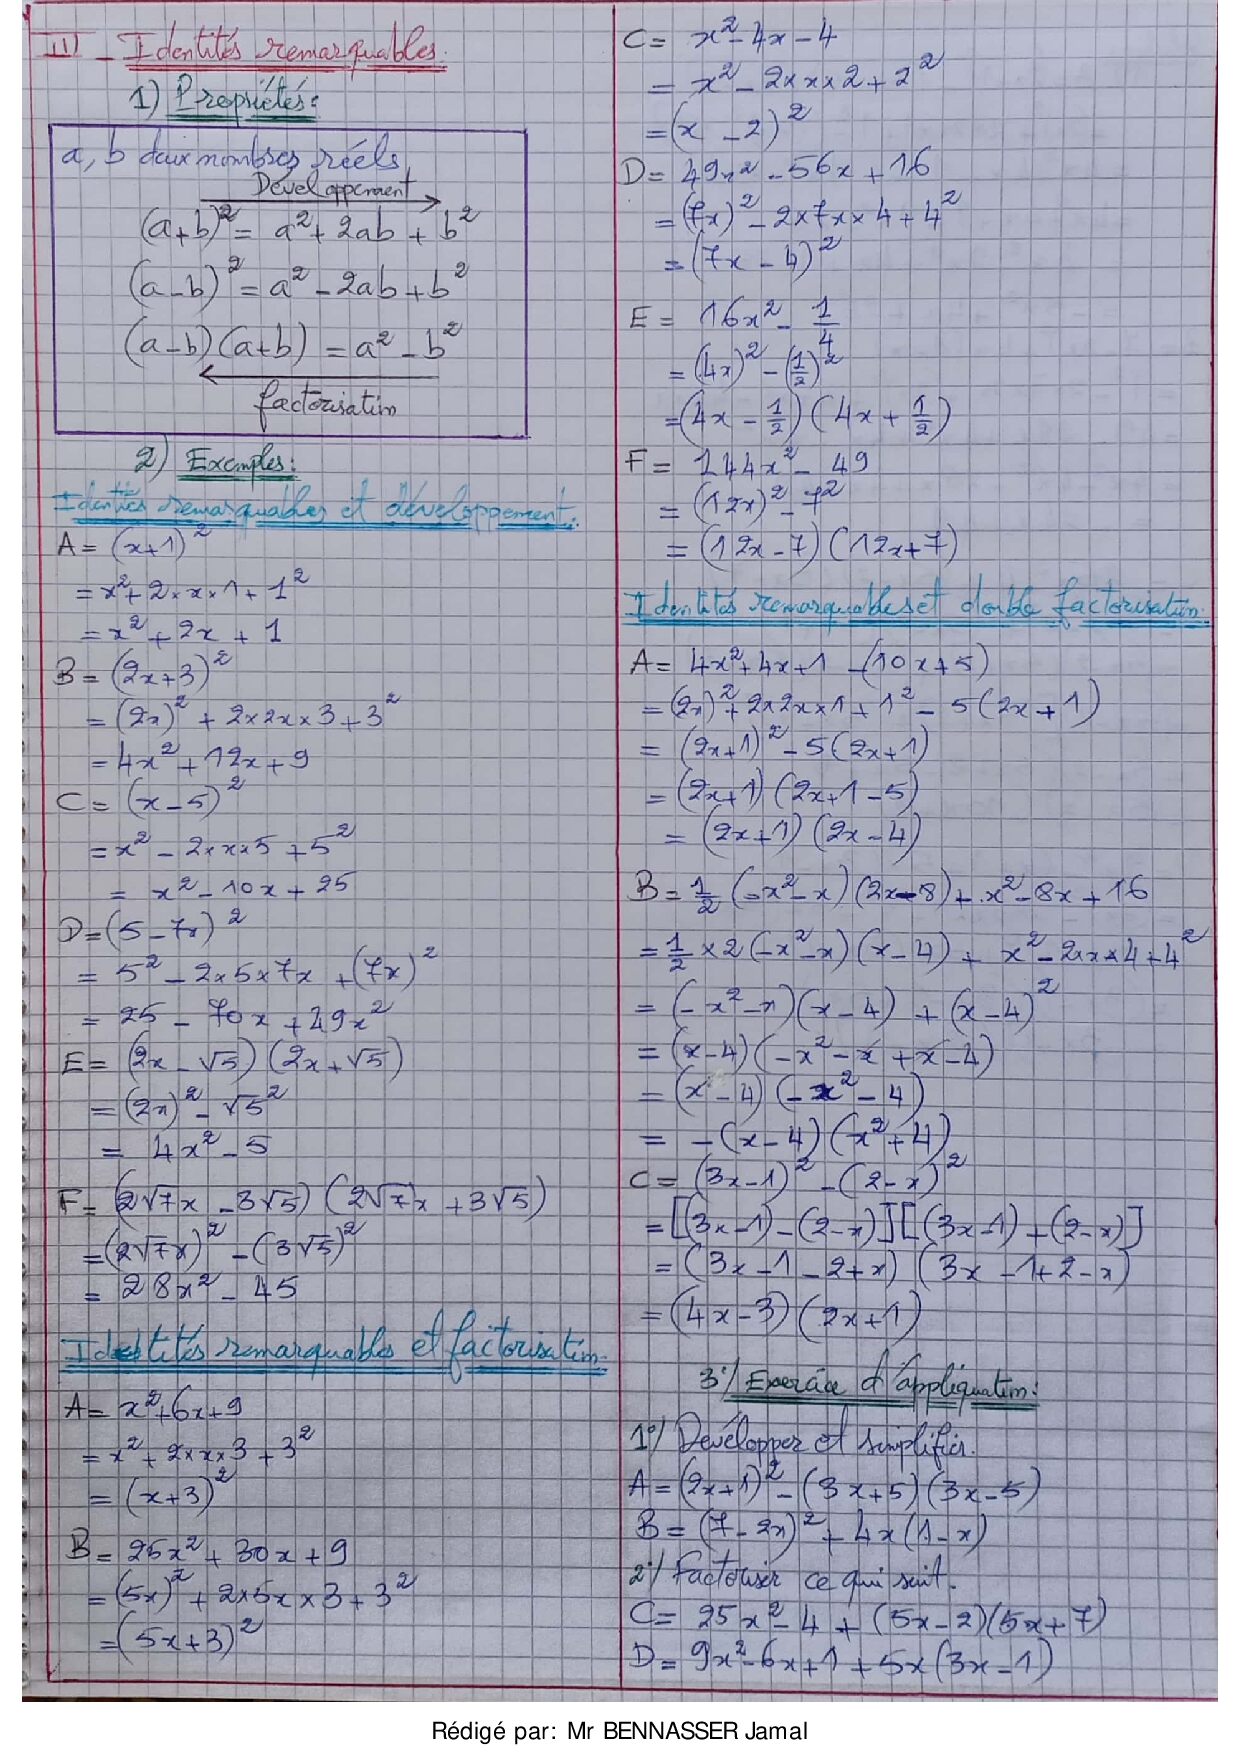 III - Identités remarquables.
1) Propriétés:
a, b deux nombres réels,
Développement
(a+b)² = a² + 2ab + b²
(a-b)² = a² - 2ab + b²
(a-b)(a+b) = a² - b²
factorisation
2) Exemples:
Identités remarquables et développement:
A = (x+1)²
= x² + 2×x×1 + 1²
= x² + 2x + 1
B = (2x+3)²
= (2x)² + 2×2x×3 + 3²
= 4x² + 12x + 9
C = (x-5)²
= x² - 2×x×5 + 5²
= x² - 10x + 25
D = (5-7x)²
= 5² - 2×5×7x + (7x)²
= 25 - 70x + 49x²
E = (2x - √5)(2x + √5)
= (2x)² - √5²
= 4x² - 5
F = (2√7x - 3√5)(2√7x + 3√5)
= (2√7x)² - (3√5)²
= 28x² - 45
Identités remarquables et factorisation.
A = x² + 6x + 9
= x² + 2×x×3 + 3²
= (x+3)²
B = 25x² + 30x + 9
= (5x)² + 2×5x×3 + 3²
= (5x+3)²
C = x² - 4x - 4
= x² - 2×x×2 + 2²
= (x - 2)²
D = 49x² - 56x + 16
= (7x)² - 2×7x×4 + 4²
= (7x - 4)²
E = 16x² - 1/4
= (4x)² - (1/2)²
= (4x - 1/2)(4x + 1/2)
F = 144x² - 49
= (12x)² - 7²
= (12x-7)(12x+7)
Identités remarquables et double factorisation.
A = 4x² + 4x + 1 - (10x+5)
= (2x)² + 2×2x×1 + 1² - 5(2x+1)
= (2x+1)² - 5(2x+1)
= (2x+1)(2x+1-5)
= (2x+1)(2x-4)
B = 1/2 (-x²-x)(2x-8) + x² - 8x + 16
= 1/2 × 2(-x²-x)(x-4) + x² - 2×x×4 + 4²
= (-x²-x)(x-4) + (x-4)²
= (x-4)(-x²-x+x-4)
= (x-4)(-x²-4)
= -(x-4)(x²+4)
C = (3x-1)² - (2-x)²
= [(3x-1)-(2-x)][(3x-1)+(2-x)]
= (3x-1-2+x)(3x-1+2-x)
= (4x-3)(2x+1)
3°/ Exercice d'appliquation:
1°/ Développer et simplifier.
A = (2x+1)² - (3x+5)(3x-5)
B = (7-2x)² + 4x(1-x)
2°/ Factoriser ce qui suit.
C = 25x² - 4 + (5x-2)(5x+7)
D = 9x² - 6x + 1 + 5x(3x-1)
Rédigé par: Mr BENNASSER Jamal